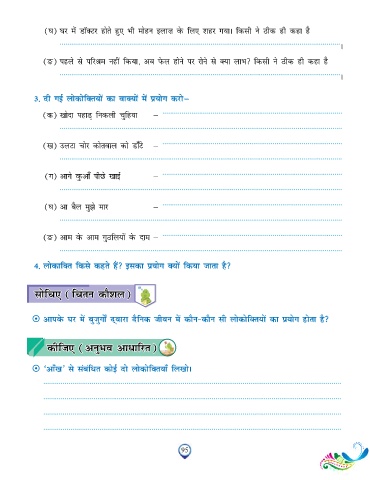 (घ) घर में डॉक्टर होते हुए भी मोहन इलाज़ के लिए शहर गया। किसी ने ठीक ही कहा है
।
(ङ) पहले से परिश्रम नहीं किया, अब फेल होने पर रोने से क्या लाभ? किसी ने ठीक ही कहा है
।
3. दी गई लोकोक्तियों का वाक्यों में प्रयोग करो–
(क) खोदा पहाड़ निकली चुहिया –
(ख) उलटा चोर कोतवाल को डाँटे –
(ग) आगे कुआँ पीछे खाई –
(घ) आ बैल मुझे मार –
(ङ) आम के आम गुठलियों के दाम –
4. लोकोक्ति किसे कहते हैं? इसका प्रयोग क्यों किया जाता है?
सोचिए ( चिंतन कौशल )
आपके घर में बुजुर्गों द्वारा दैनिक जीवन में कौन-कौन सी लोकोक्तियों का प्रयोग होता है?
कीजिए ( अनुभव आधारित )
'आँख' से संबंधित कोई दो लोकोक्तियाँ लिखो।
95